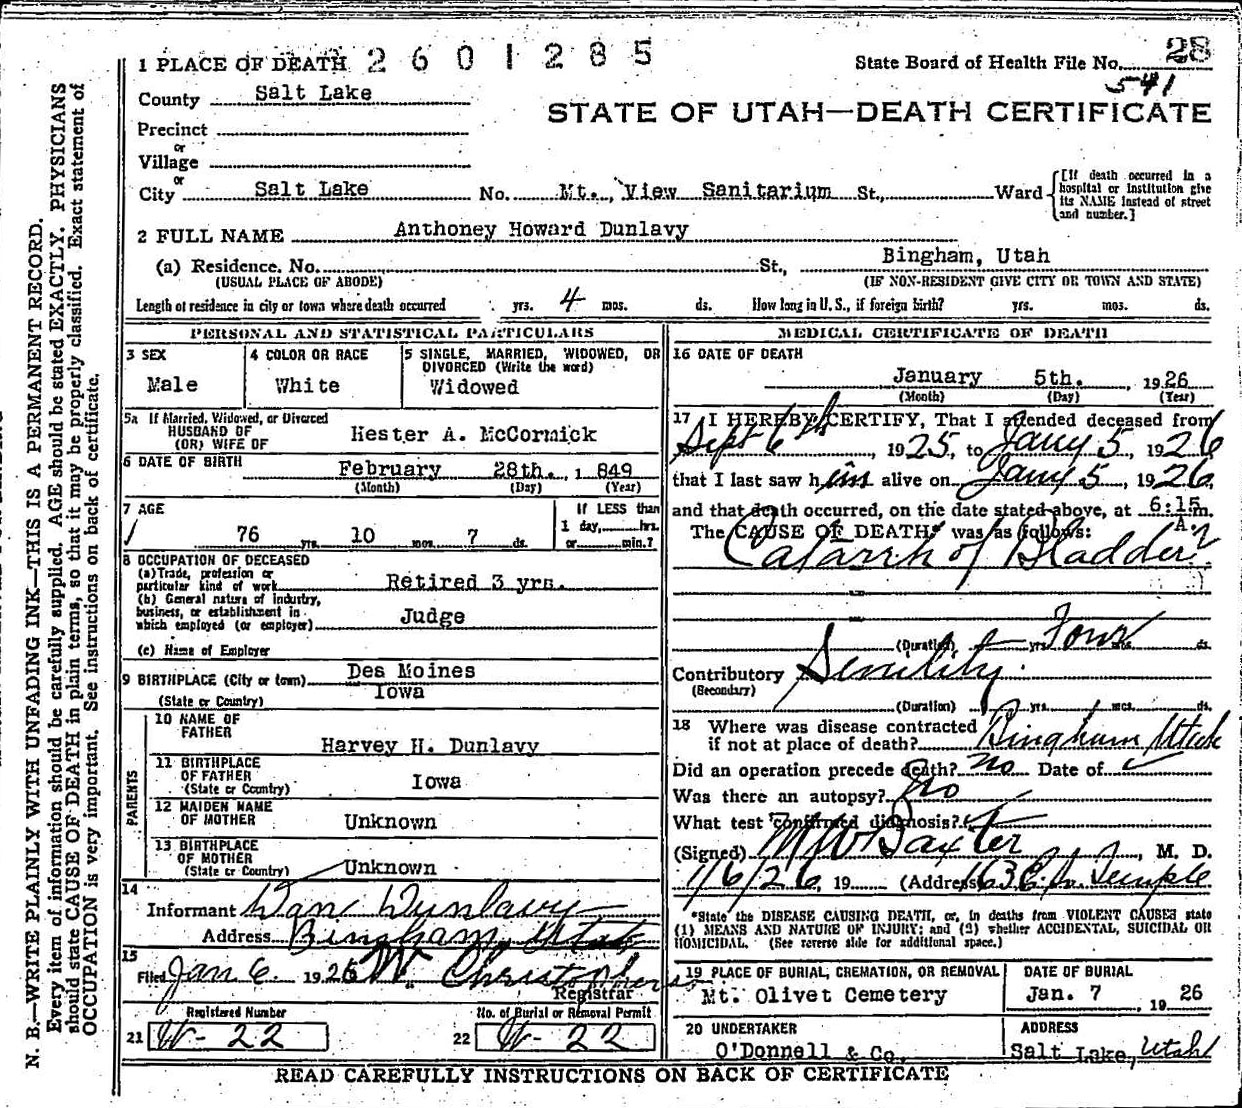 N. B.—WRITE PLAINLY WITH UNFADING INK—THIS IS A PERMANENT RECORD.
Every item of information should be carefully supplied. AGE should be stated EXACTLY. PHYSICIANS
should state CAUSE OF DEATH in plain terms, so that it may be properly classified. Exact statement of
OCCUPATION is very important. See instructions on back of certificate.
1 PLACE OF DEATH 2601285
State Board of Health File No. 28
541
County Salt Lake
STATE OF UTAH—DEATH CERTIFICATE
Precinct
or
Village
or
City Salt Lake No. Mt., View Sanitarium St., Ward
[If death occurred in a
hospital or institution give
its NAME instead of street
and number.]
2 FULL NAME Anthoney Howard Dunlavy
(a) Residence. No. St., Bingham, Utah
(USUAL PLACE OF ABODE) (IF NON-RESIDENT GIVE CITY OR TOWN AND STATE)
Length of residence in city or town where death occurred yrs. 4 mos. ds. How long in U. S., if foreign birth? yrs. mos. ds.
PERSONAL AND STATISTICAL PARTICULARS
3 SEX
Male
4 COLOR OR RACE
White
5 SINGLE, MARRIED, WIDOWED, OR
DIVORCED (Write the word)
Widowed
5a If Married, Widowed, or Divorced
HUSBAND OF
(OR) WIFE OF Hester A. McCormick
6 DATE OF BIRTH
February 28th., 1 849
(Month) (Day) (Year)
7 AGE
76 yrs. 10 mos. 7 ds.
If LESS than
1 day,......hrs.
or......min.?
8 OCCUPATION OF DECEASED
(a) Trade, profession or
particular kind of work Retired 3 yrs.
(b) General nature of industry,
business, or establishment in
which employed (or employer) Judge
(c) Name of Employer
9 BIRTHPLACE (City or town) Des Moines
(State or Country) Iowa
PARENTS
10 NAME OF
FATHER
Harvey H. Dunlavy
11 BIRTHPLACE
OF FATHER
(State or Country) Iowa
12 MAIDEN NAME
OF MOTHER Unknown
13 BIRTHPLACE
OF MOTHER
(State or Country) Unknown
14
Informant Dan Dunlavy
Address Bingham, Utah
15
Filed Jan 6. 1926 Christophers
Registrar
Registered Number
21 W- 22
No. of Burial or Removal Permit
22 W- 22
MEDICAL CERTIFICATE OF DEATH
16 DATE OF DEATH
January 5th. , 1926
(Month) (Day) (Year)
17 I HEREBY CERTIFY, That I attended deceased from
Sept 6th, 1925, to Jany 5, 1926
that I last saw him alive on Jany 5, 1926,
and that death occurred, on the date stated above, at 6:15 m.
A.
The CAUSE OF DEATH* was as follows:
Catarrh of Bladder
(Duration) yrs. Four mos. ds.
Contributory Senility.
(Secondary)
(Duration) yrs. mos. ds.
18 Where was disease contracted
if not at place of death? Bingham Utah
Did an operation precede death? No Date of
Was there an autopsy? No
What test confirmed diagnosis?
(Signed) M W Baxter, M. D.
1/6/26, 19 (Address) 163 E. So. Temple
*State the DISEASE CAUSING DEATH, or, in deaths from VIOLENT CAUSES state
(1) MEANS AND NATURE OF INJURY; and (2) whether ACCIDENTAL, SUICIDAL OR
HOMICIDAL. (See reverse side for additional space.)
19 PLACE OF BURIAL, CREMATION, OR REMOVAL
Mt. Olivet Cemetery
DATE OF BURIAL
Jan. 7 1926
20 UNDERTAKER
O'Donnell & Co.
ADDRESS
Salt Lake, Utah
READ CAREFULLY INSTRUCTIONS ON BACK OF CERTIFICATE